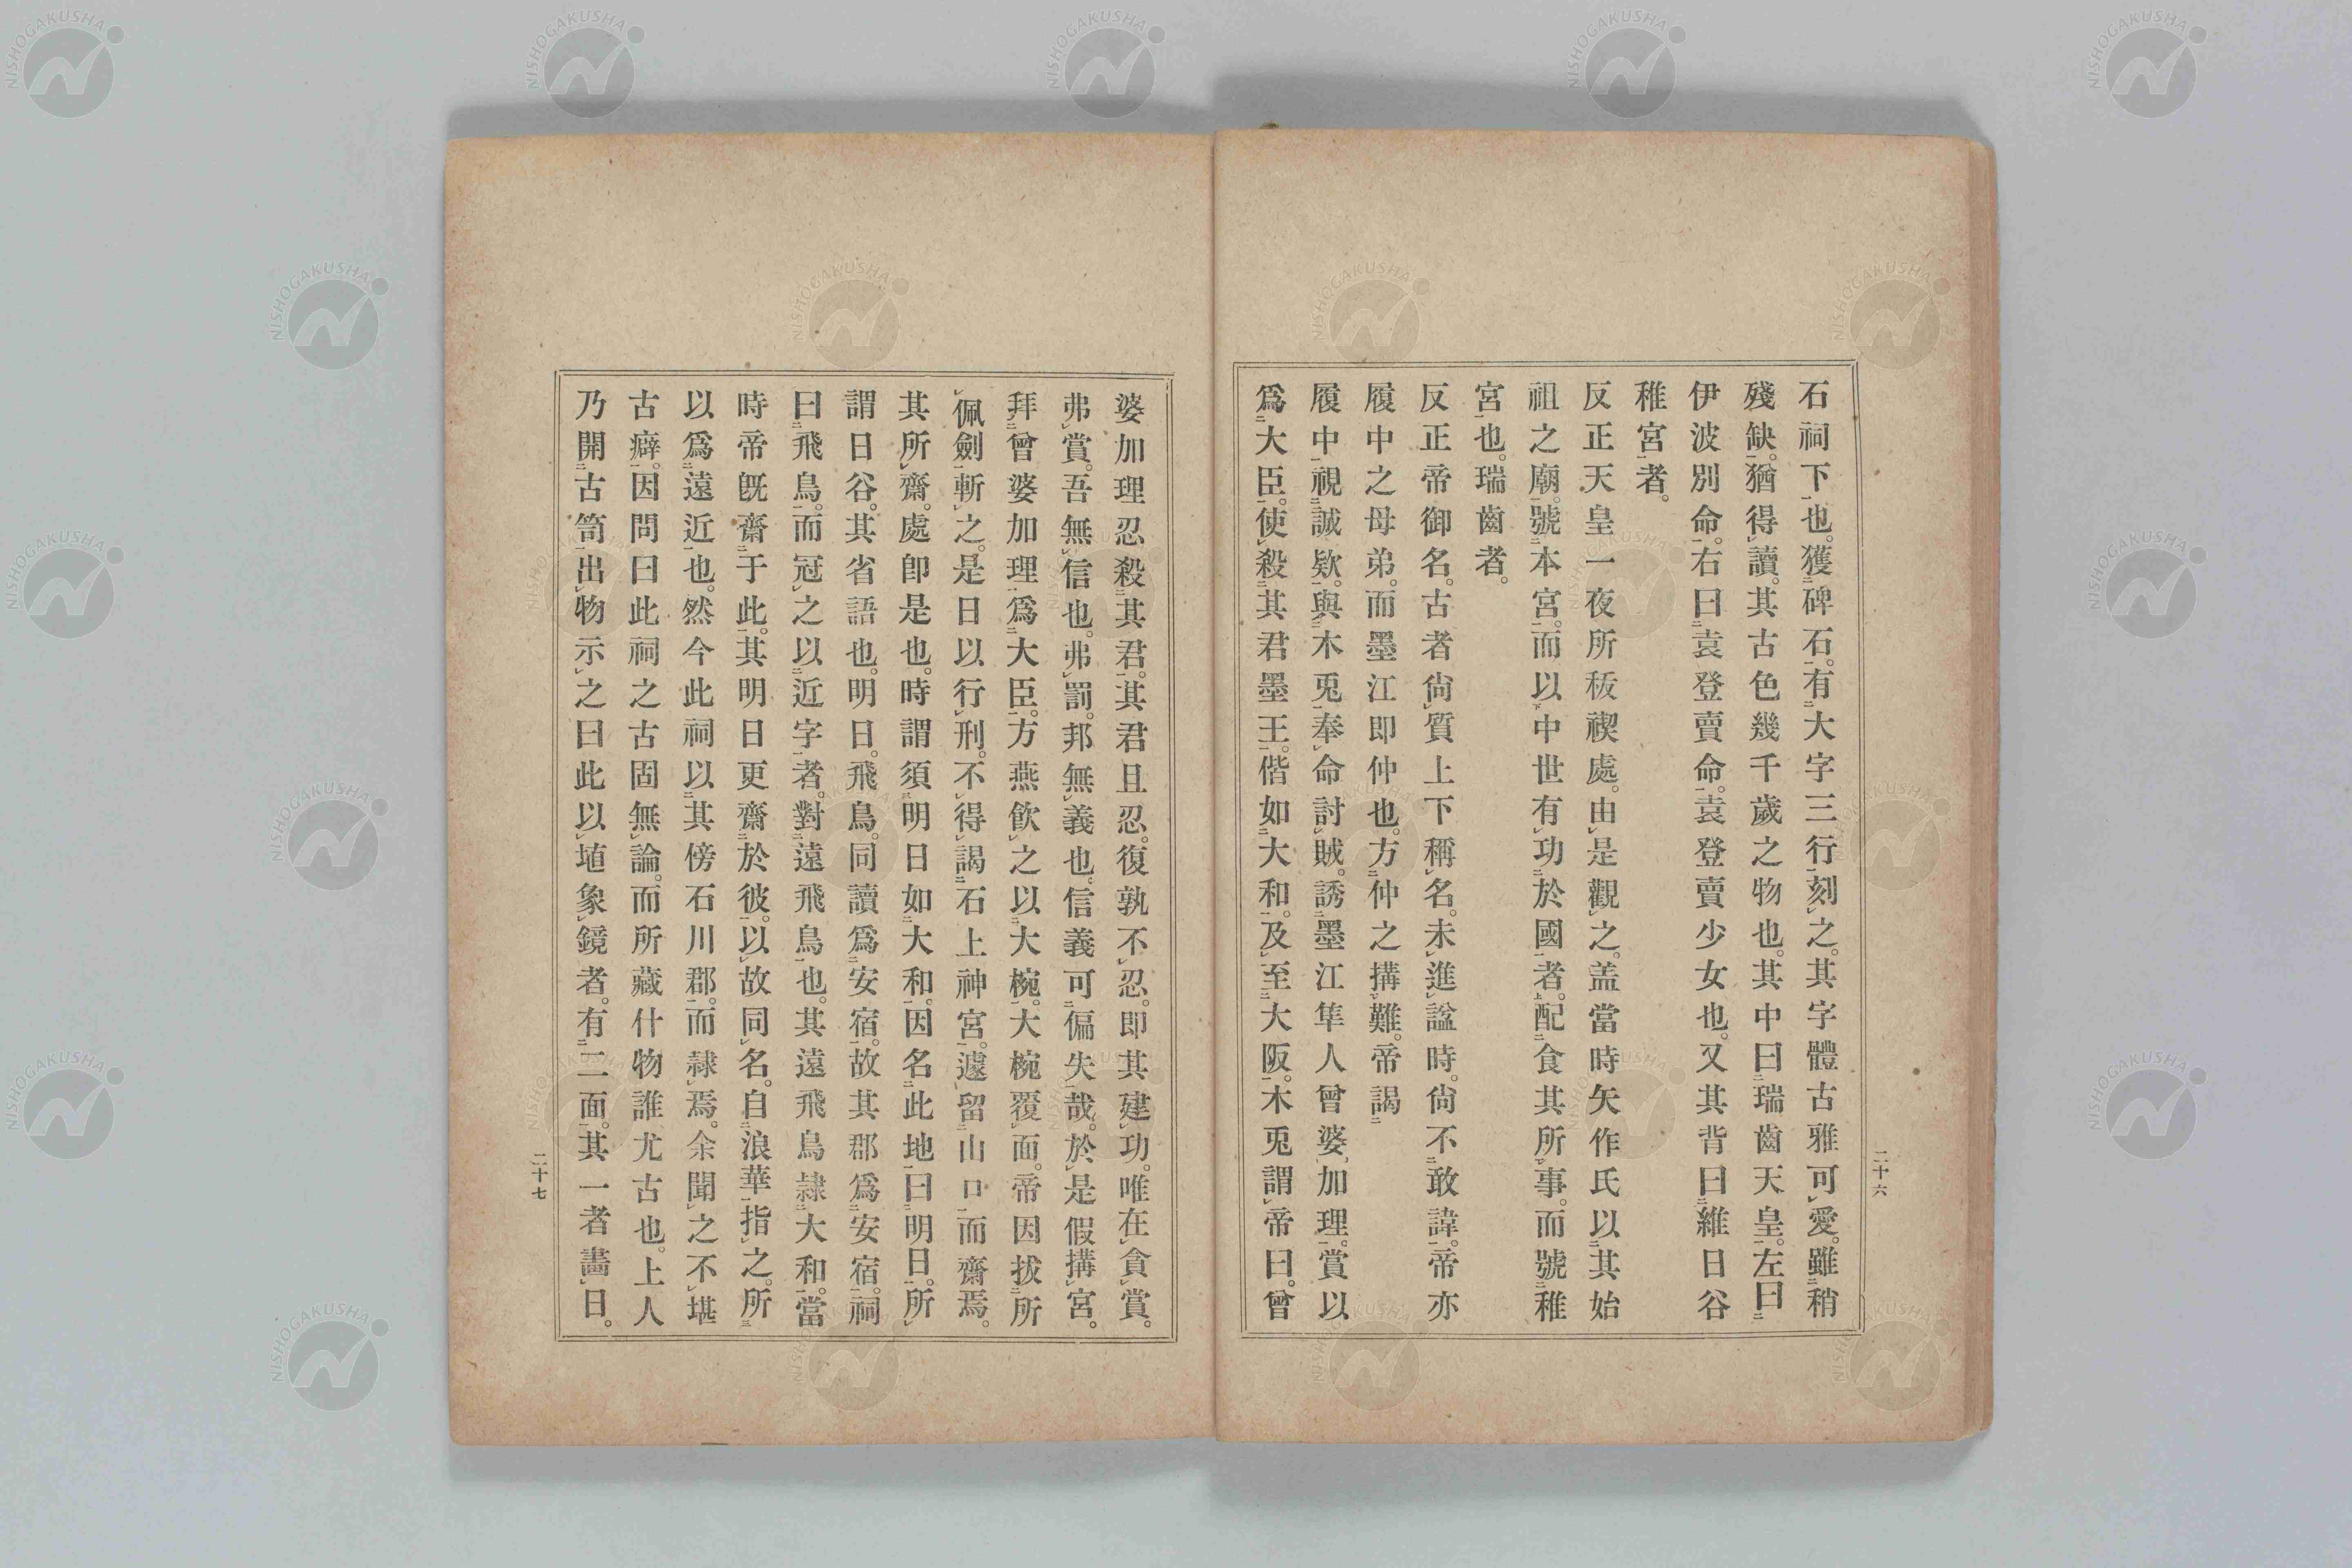 石祠下也。獲碑石。有大字三行刻之。其字體古雅可愛。雖稍
殘缺。猶得讀。其古色幾千歲之物也。其中曰瑞齒天皇。左曰
伊波別命。右曰袁登賣命。袁登賣少女也。又其背曰維日谷
稚宮者。
反正天皇一夜所秡禊處。由是觀之。盖當時矢作氏以其始
祖之廟。號本宮。而以中世有功於國者。配食其所事。而號稚
宮也。瑞齒者。
反正帝御名。古者尙質上下稱名。未進諡時。尙不敢諱。帝亦
履中之母弟。而墨江即仲也。方仲之搆難。帝謁
履中視誠欵。與木兎奉命討賊。誘墨江隼人曾婆加理。賞以
爲大臣。使殺其君墨王。偕如大和。及至大阪。木兎謂帝曰。曾
二十六
婆加理忍殺其君。其君且忍。復孰不忍。即其建功。唯在貪賞。
弗賞。吾無信也。弗罰。邦無義也。信義可偏失哉。於是假搆宮。
拜曾婆加理爲大臣。方燕飮之以大椀。大椀覆面。帝因拔所
佩劍斬之。是日以行刑。不得謁石上神宮。遽留山口而齋焉。
其所齋。處卽是也。時謂須明日如大和。因名此地曰明日。所
謂日谷。其省語也。明日。飛鳥。同讀爲安宿。故其郡爲安宿。祠
曰飛鳥。而冠之以近字者。對遠飛鳥也。其遠飛鳥隷大和。當
時帝既齋于此。其明日更齋於彼。以故同名。自浪華指之。所
以爲遠近也。然今此祠以其傍石川郡。而隷焉。余聞之不堪
古癖。因問曰此祠之古固無論。而所藏什物誰尤古也。上人
乃開古笥出物示之曰此以埴象鏡者。有二面。其一者畵日。
二十七
NISHOGAKUSHA